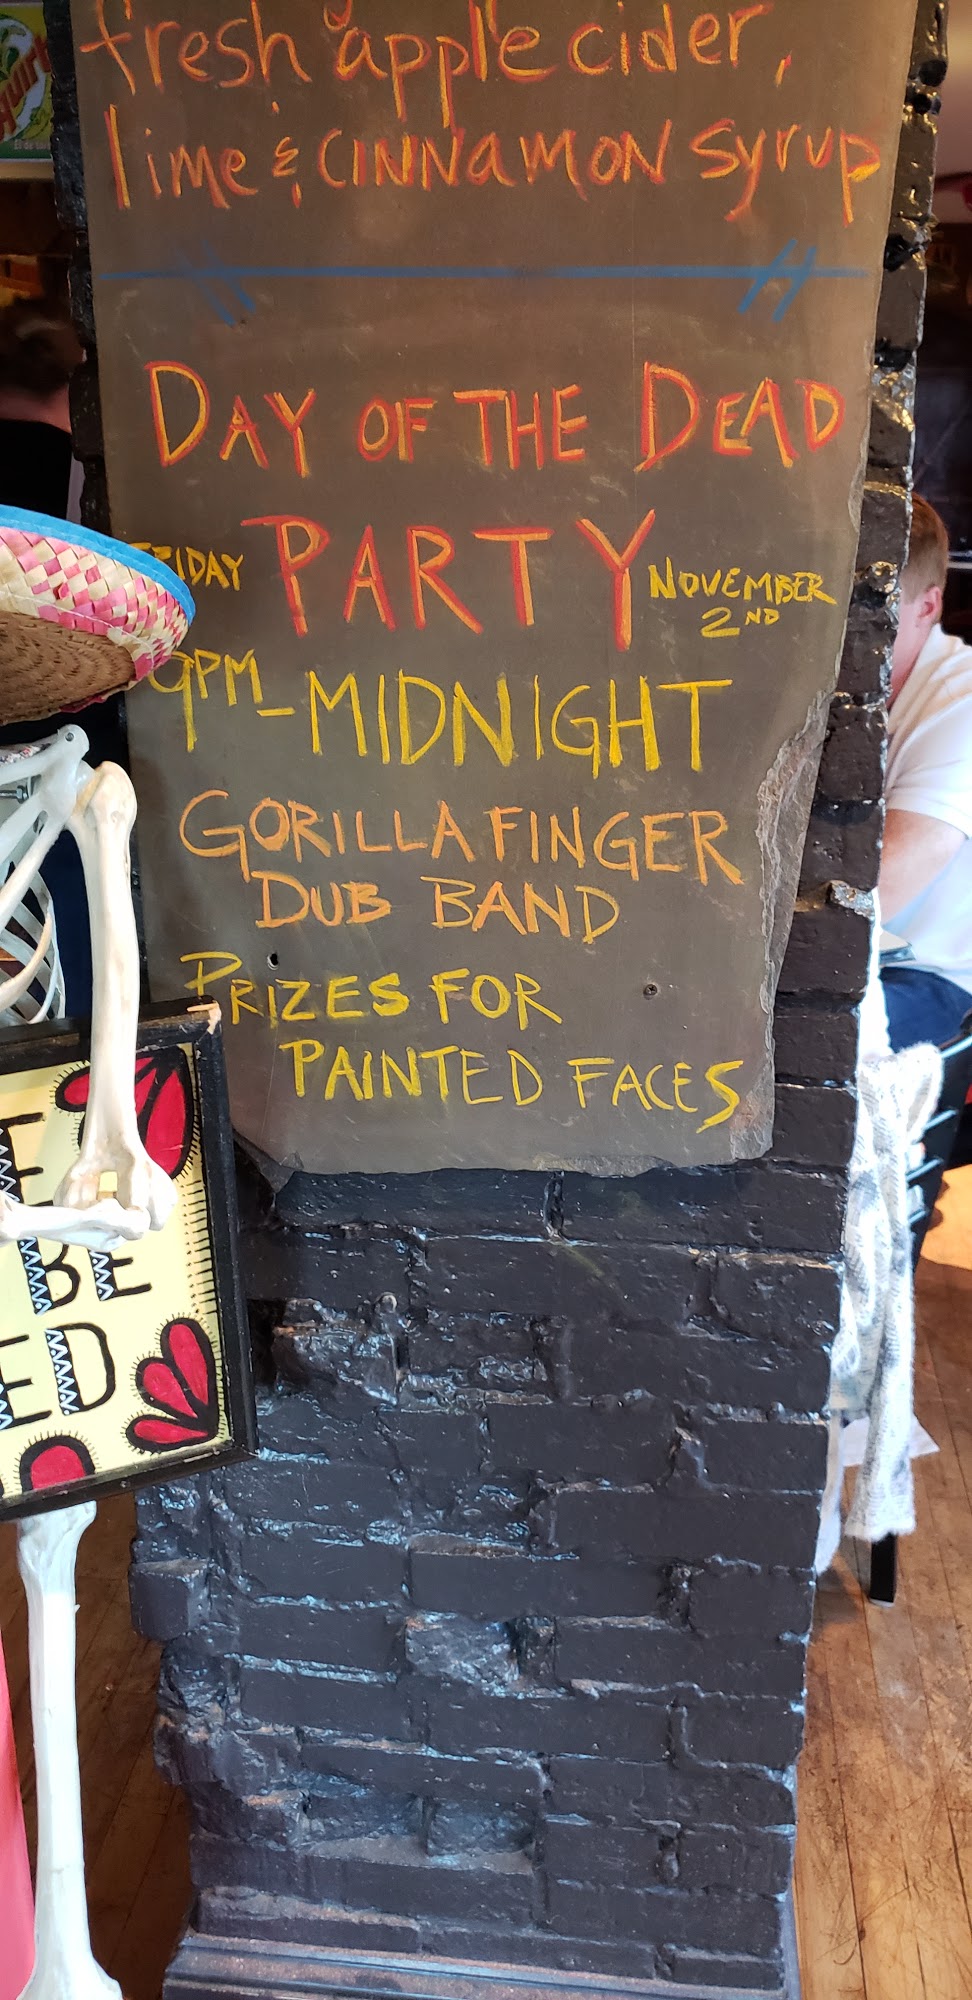 fresh apple cider,
lime & CINNAMON syrup
DAY OF THE DEAD
PARTY
FRIDAY
NOVEMBER
2ND
9PM - MIDNIGHT
GORILLA FINGER
DUB BAND
PRIZES FOR
PAINTED FACES
BE
ED